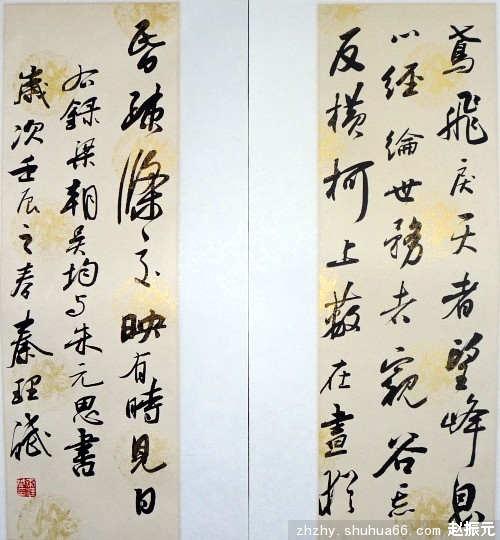 鳶飛戾天者望峰息
心經綸世務者窺谷忘
反橫柯上蔽在晝猶
昏疎條交映有時見日
右錄梁朝吳均与朱元思書
歲次壬辰之春秦理
zhzhy.shuhua66.com 赵振元